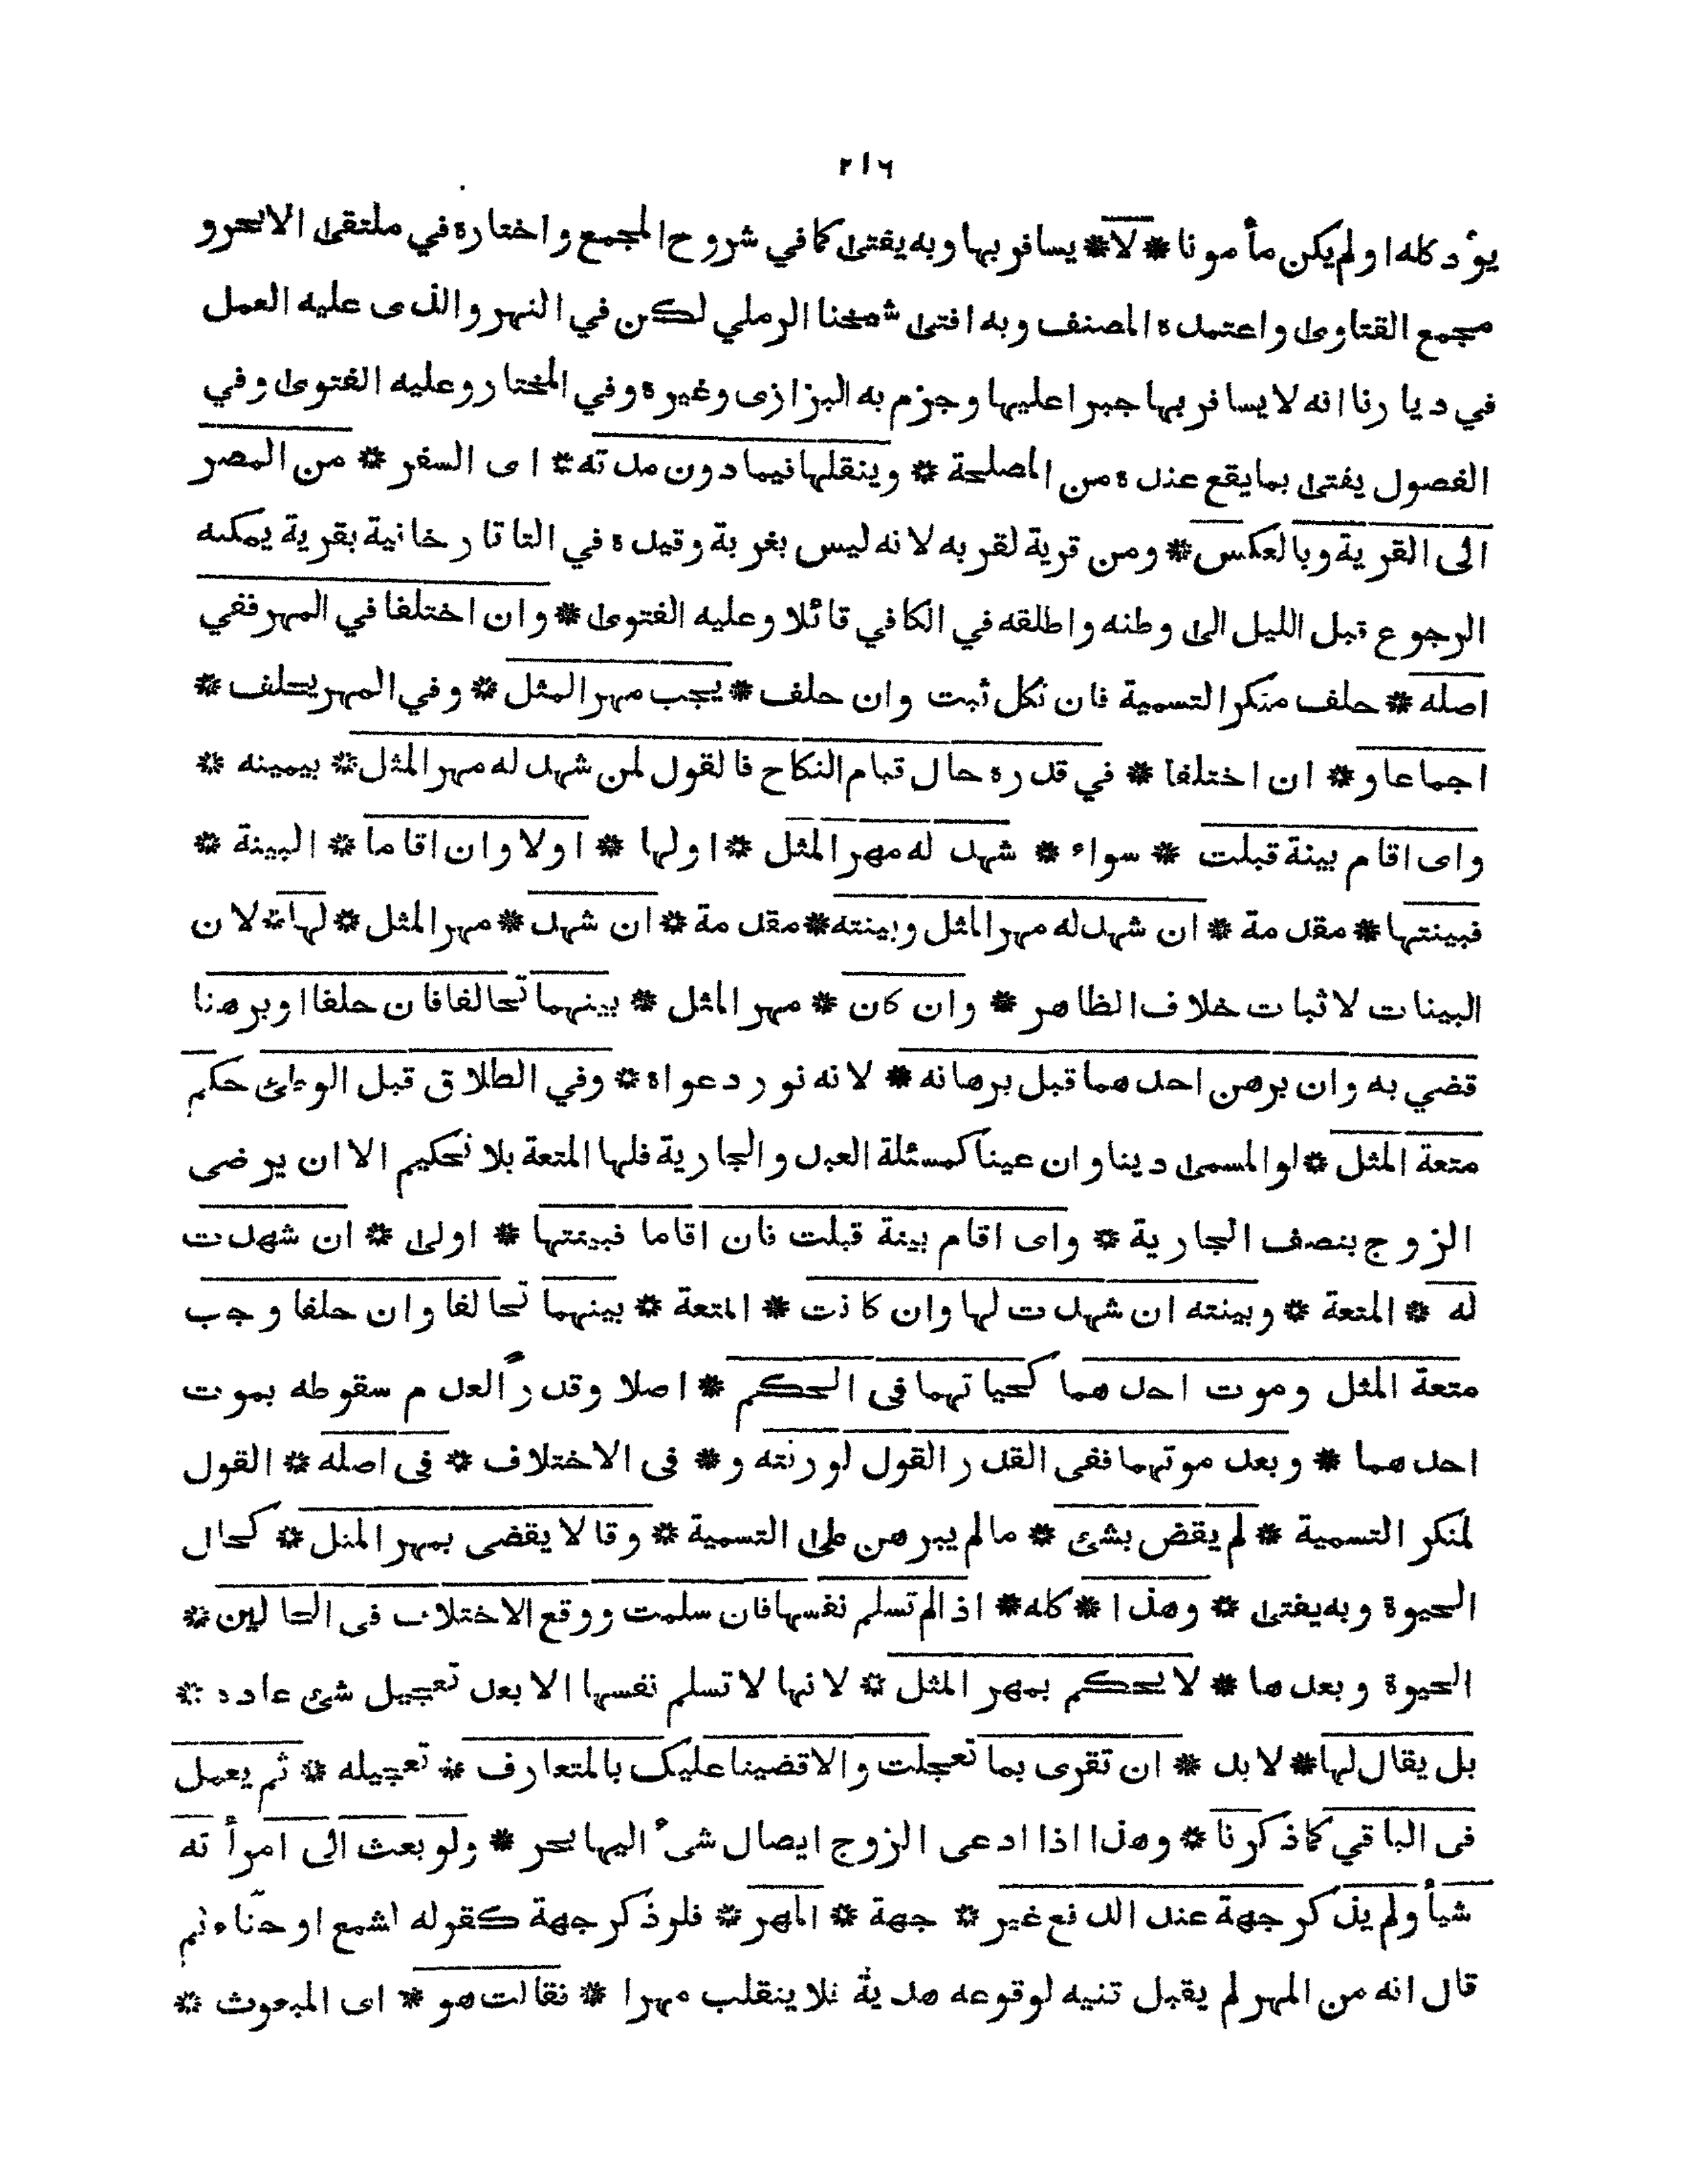 ٢١٦
يؤد كله اولم يكن مأمونا * لا * يسافر بها وبه يفتى كما في شروح المجمع واختاره في ملتقى الابحر و
مجمع الفتاوى واعتمده المصنف وبه افتى شيخنا الرملي لكن في النهر والذى عليه العمل
في ديارنا انه لا يسافر بها جبرا عليها وجزم به البزازى وغيره وفي المختار وعليه الفتوى وفي
الفصول يفتى بما يقع عنده من المصلحة * وينقلها فيما دون مدته * اى السفر * من المصر
الى القرية وبالعكس * ومن قرية لقربه لانه ليس بغربة وقيده في التاتارخانية بقرية يمكنه
الرجوع قبل الليل الى وطنه واطلقه في الكافي قائلا وعليه الفتوى * وان اختلفا في المهر ففي
اصله * حلف منكر التسمية فان نكل ثبت وان حلف * يجب مهر المثل * وفي المهر يحلف *
اجماعا و * ان اختلفا * في قدره حال قيام النكاح فالقول لمن شهد له مهر المثل * بيمينه *
واى اقام بينة قبلت * سواء * شهد له مهر المثل * اولها * اولا وان اقاما * البينة *
فبينتها * مقدمة * ان شهد له مهر المثل وبينته * مقدمة * ان شهد * مهر المثل * لها * لان
البينات لاثبات خلاف الظاهر * وان كان * مهر المثل * بينهما تحالفا فان حلفا اوبرهنا
قضي به وان برهن احدهما قبل برهانه * لانه نور دعواه * وفي الطلاق قبل الوطئ حكم
متعة المثل * لو المسمى دينا وان عينا كمسئلة العبد والجارية فلها المتعة بلا تحكيم الا ان يرضى
الزوج بنصف الجارية * واى اقام بينة قبلت فان اقاما فبينتها * اولى * ان شهدت
له * المتعة * وبينته ان شهدت لها وان كانت * المتعة * بينهما تحالفا وان حلفا وجب
متعة المثل وموت احدهما كحياتهما فى الحكم * اصلا وقدرًا لعدم سقوطه بموت
احدهما * وبعد موتهما ففى القدر القول لورثته و * فى الاختلاف * فى اصله * القول
لمنكر التسمية * لم يقض بشئ * مالم يبرهن على التسمية * وقالا يقضى بمهر المثل * كحال
الحيوة وبه يفتى * وهذا * كله * اذا لم تسلم نفسها فان سلمت ووقع الاختلاف فى الحالين *
الحيوة وبعدها * لا يحكم بمهر المثل * لانها لا تسلم نفسها الا بعد تعجيل شئ عادة *
بل يقال لها * لابد * ان تقرى بما تعجلت والا قضينا عليك بالمتعارف * تعجيله * ثم يعمل
فى الباقي كما ذكرنا * وهذا اذا ادعى الزوج ايصال شىء اليها بحر * ولو بعث الى امرأته
شيأ ولم يذكر جهة عند الدفع غير * جهة * المهر * فلو ذكر جهة كقوله لشمع او حنّاء ثم
قال انه من المهر لم يقبل قنيه لوقوعه هدية فلا ينقلب مهرا * فقالت هو * اى المبعوث *